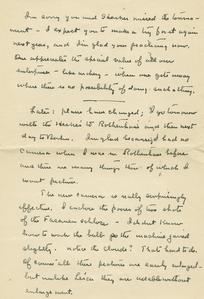 I'm sorry you and Theresa missed the tourna-
ment - I expect you to make a big first again
next year, and I'm glad you're practicing now.
One appreciates the special value of all over
enterprises - like archery - when one gets away
where there is no possibility of doing such a thing.
Later: plans have changed; I go tomorrow
with the Heckes to Rothenburg and then next
day to Berlin. I'm glad because I had no
camera when I was in Rothenburg before
and there are many things there of which I
want pictures.
The new camera is really surprisingly
effective. I enclose the proofs of two shots
of the Faranen schloss - I didn't know
how to work the bulb so the machine jarred
slightly. Notice the clouds? That's hard to do.
Of course all these pictures are easily enlarged -
but unlike Leica they are useable without
enlargement.